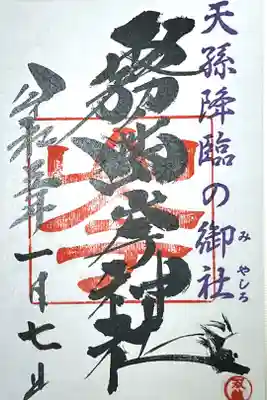 天孫降臨の御社
みやしろ
霧島岑神社
令和三年一月七日